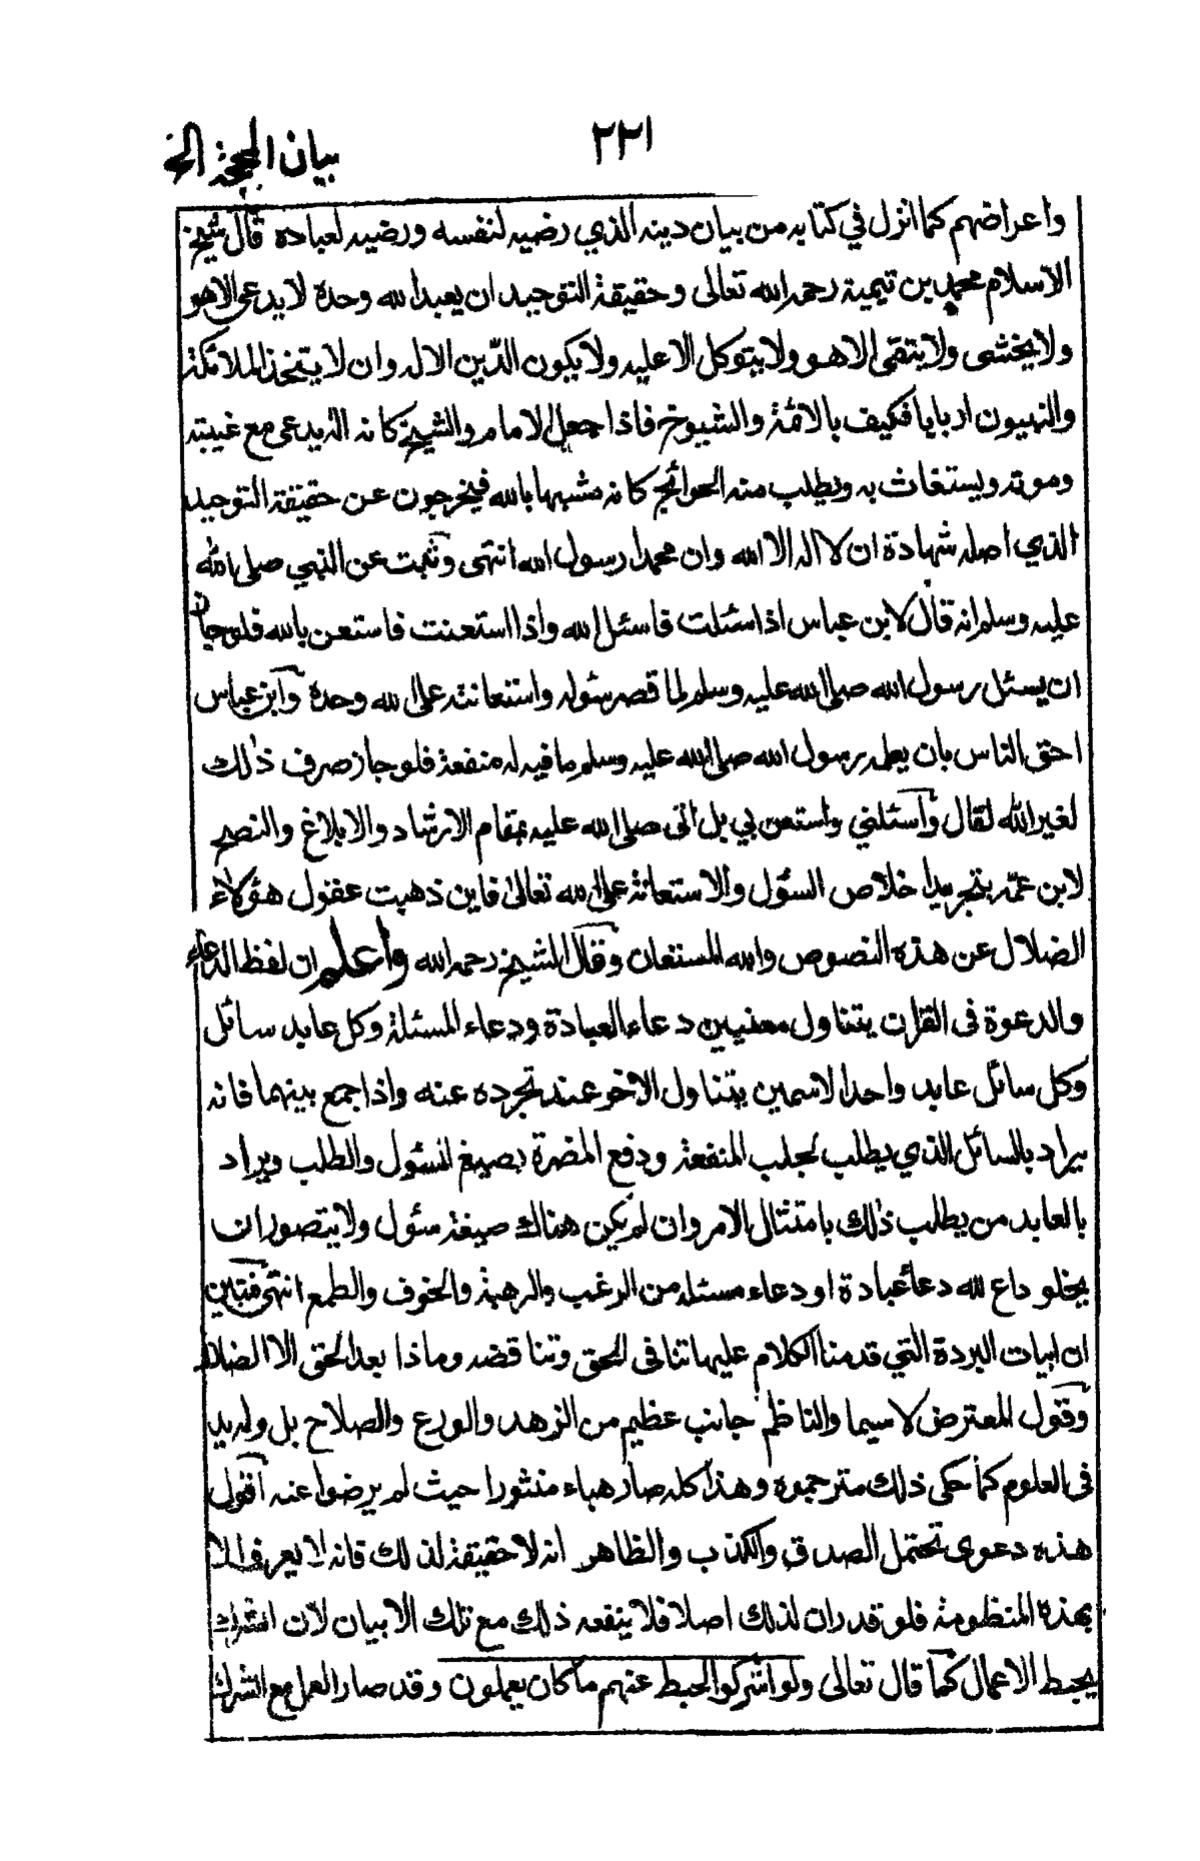 ٢٢١
بيان المحجة الخ
واعراضهم كما انزل في كتابه من بيان دينه الذي رضيه لنفسه ورضيه لعباده قال شيخ
الاسلام محمد بن تيمية رحمه الله تعالى وحقيقة التوحيد ان يعبد الله وحده لا يدعى الا هو
ولا يخشى ولا يتقى الا هو ولا يتوكل الا عليه ولا يكون الدّين الا له وان لا يتخذ الملائكة
والنبيون اربابا فكيف بالائمة والشيوخ فاذا جعل الامام والشيخ كانه اله يدعى مع غيبته
وموته ويستغاث به ويطلب منه الحوائج كانه مشبها بالله فيخرجون عن حقيقة التوحيد
الذي اصله شهادة ان لا اله الا الله وان محمدا رسول الله انتهى وثبت عن النبي صلى الله
عليه وسلم انه قال لابن عباس اذا سئلت فاسئل الله واذا استعنت فاستعن بالله فلو جاز
ان يسئل رسول الله صلى الله عليه وسلم لما قصر سئوله واستعانته على الله وحده وابن عباس
احق الناس بان يعلمه رسول الله صلى الله عليه وسلم ما فيه له منفعة فلو جاز صرف ذلك
لغير الله لقال واسئلني واستعن بي بل اتى صلى الله عليه بمقام الارشاد والابلاغ والنصح
لابن عمّه بتجريد اخلاص السئول والاستعانة على الله تعالى فاين ذهبت عقول هؤلاء
الضلال عن هذه النصوص والله المستعان وقال الشيخ رحمه الله واعلم ان لفظ الدعاء
والدعوة في القران يتناول معنيين دعاء العبادة ودعاء المسئلة وكل عابد سائل
وكل سائل عابد واحد الاسمين يتناول الاخر عند تجرده عنه واذا جمع بينهما فانه
يراد بالسائل الذي يطلب لجلب المنفعة ودفع المضرة بصيغ السئول والطلب ويراد
بالعابد من يطلب ذلك بامتثال الامر وان لم يكن هناك صيغة سئول ولا يتصور ان
يخلو داع لله دعا عبادة او دعاء مسئلة من الرغب والرهبة والخوف والطمع انتهى فتبين
ان ابيات البردة التي قدمنا الكلام عليها تنافى الحق وتناقضه وماذا بعد الحق الا الضلال
وقول المعترض لا سيما والناظم جانب عظيم من الزهد والورع والصلاح بل وله يد
في العلوم كما حكى ذلك مترجموه وهذا كله صار هباء منثورا حيث لم يرضوا عنه اقول
هذه دعوى تحتمل الصدق والكذب والظاهر انه لا حقيقة لذلك فانه لا يعرف الا
بهذه المنظومة فلو قدر ان لذلك اصلا فلا ينفعه ذلك مع تلك الابيات لان الشرك
يحبط الاعمال كما قال تعالى ولو اشركوا لحبط عنهم ما كان يعملون وقد صار العمل مع الشرك